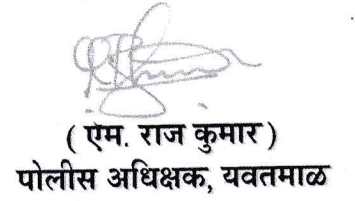 ( एम. राज कुमार )
पोलीस अधिक्षक, यवतमाळ